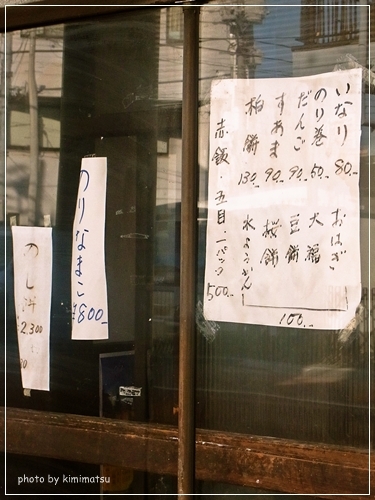 いなり 80.-
のり巻 50.-
だんご 90.-
すあま 90.-
柏餅 130.-
赤飯・五目・一パック 500.-
おはぎ
大福
豆餅
桜餅
水ようかん
100.-
のりなまこ
¥800-
のし餅
2,300
photo by kimimatsu